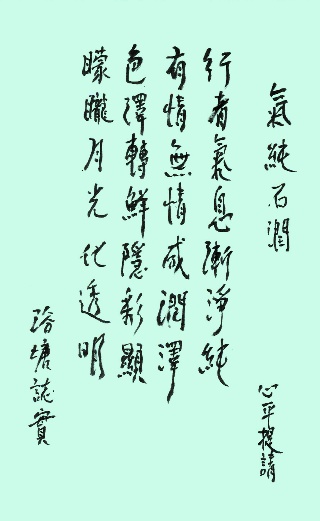 氣純石潤
心平提請
行者氣息漸淨純
有情無情咸潤澤
色澤轉鮮隱彩顯
矇矓月光化透明
塘誌實